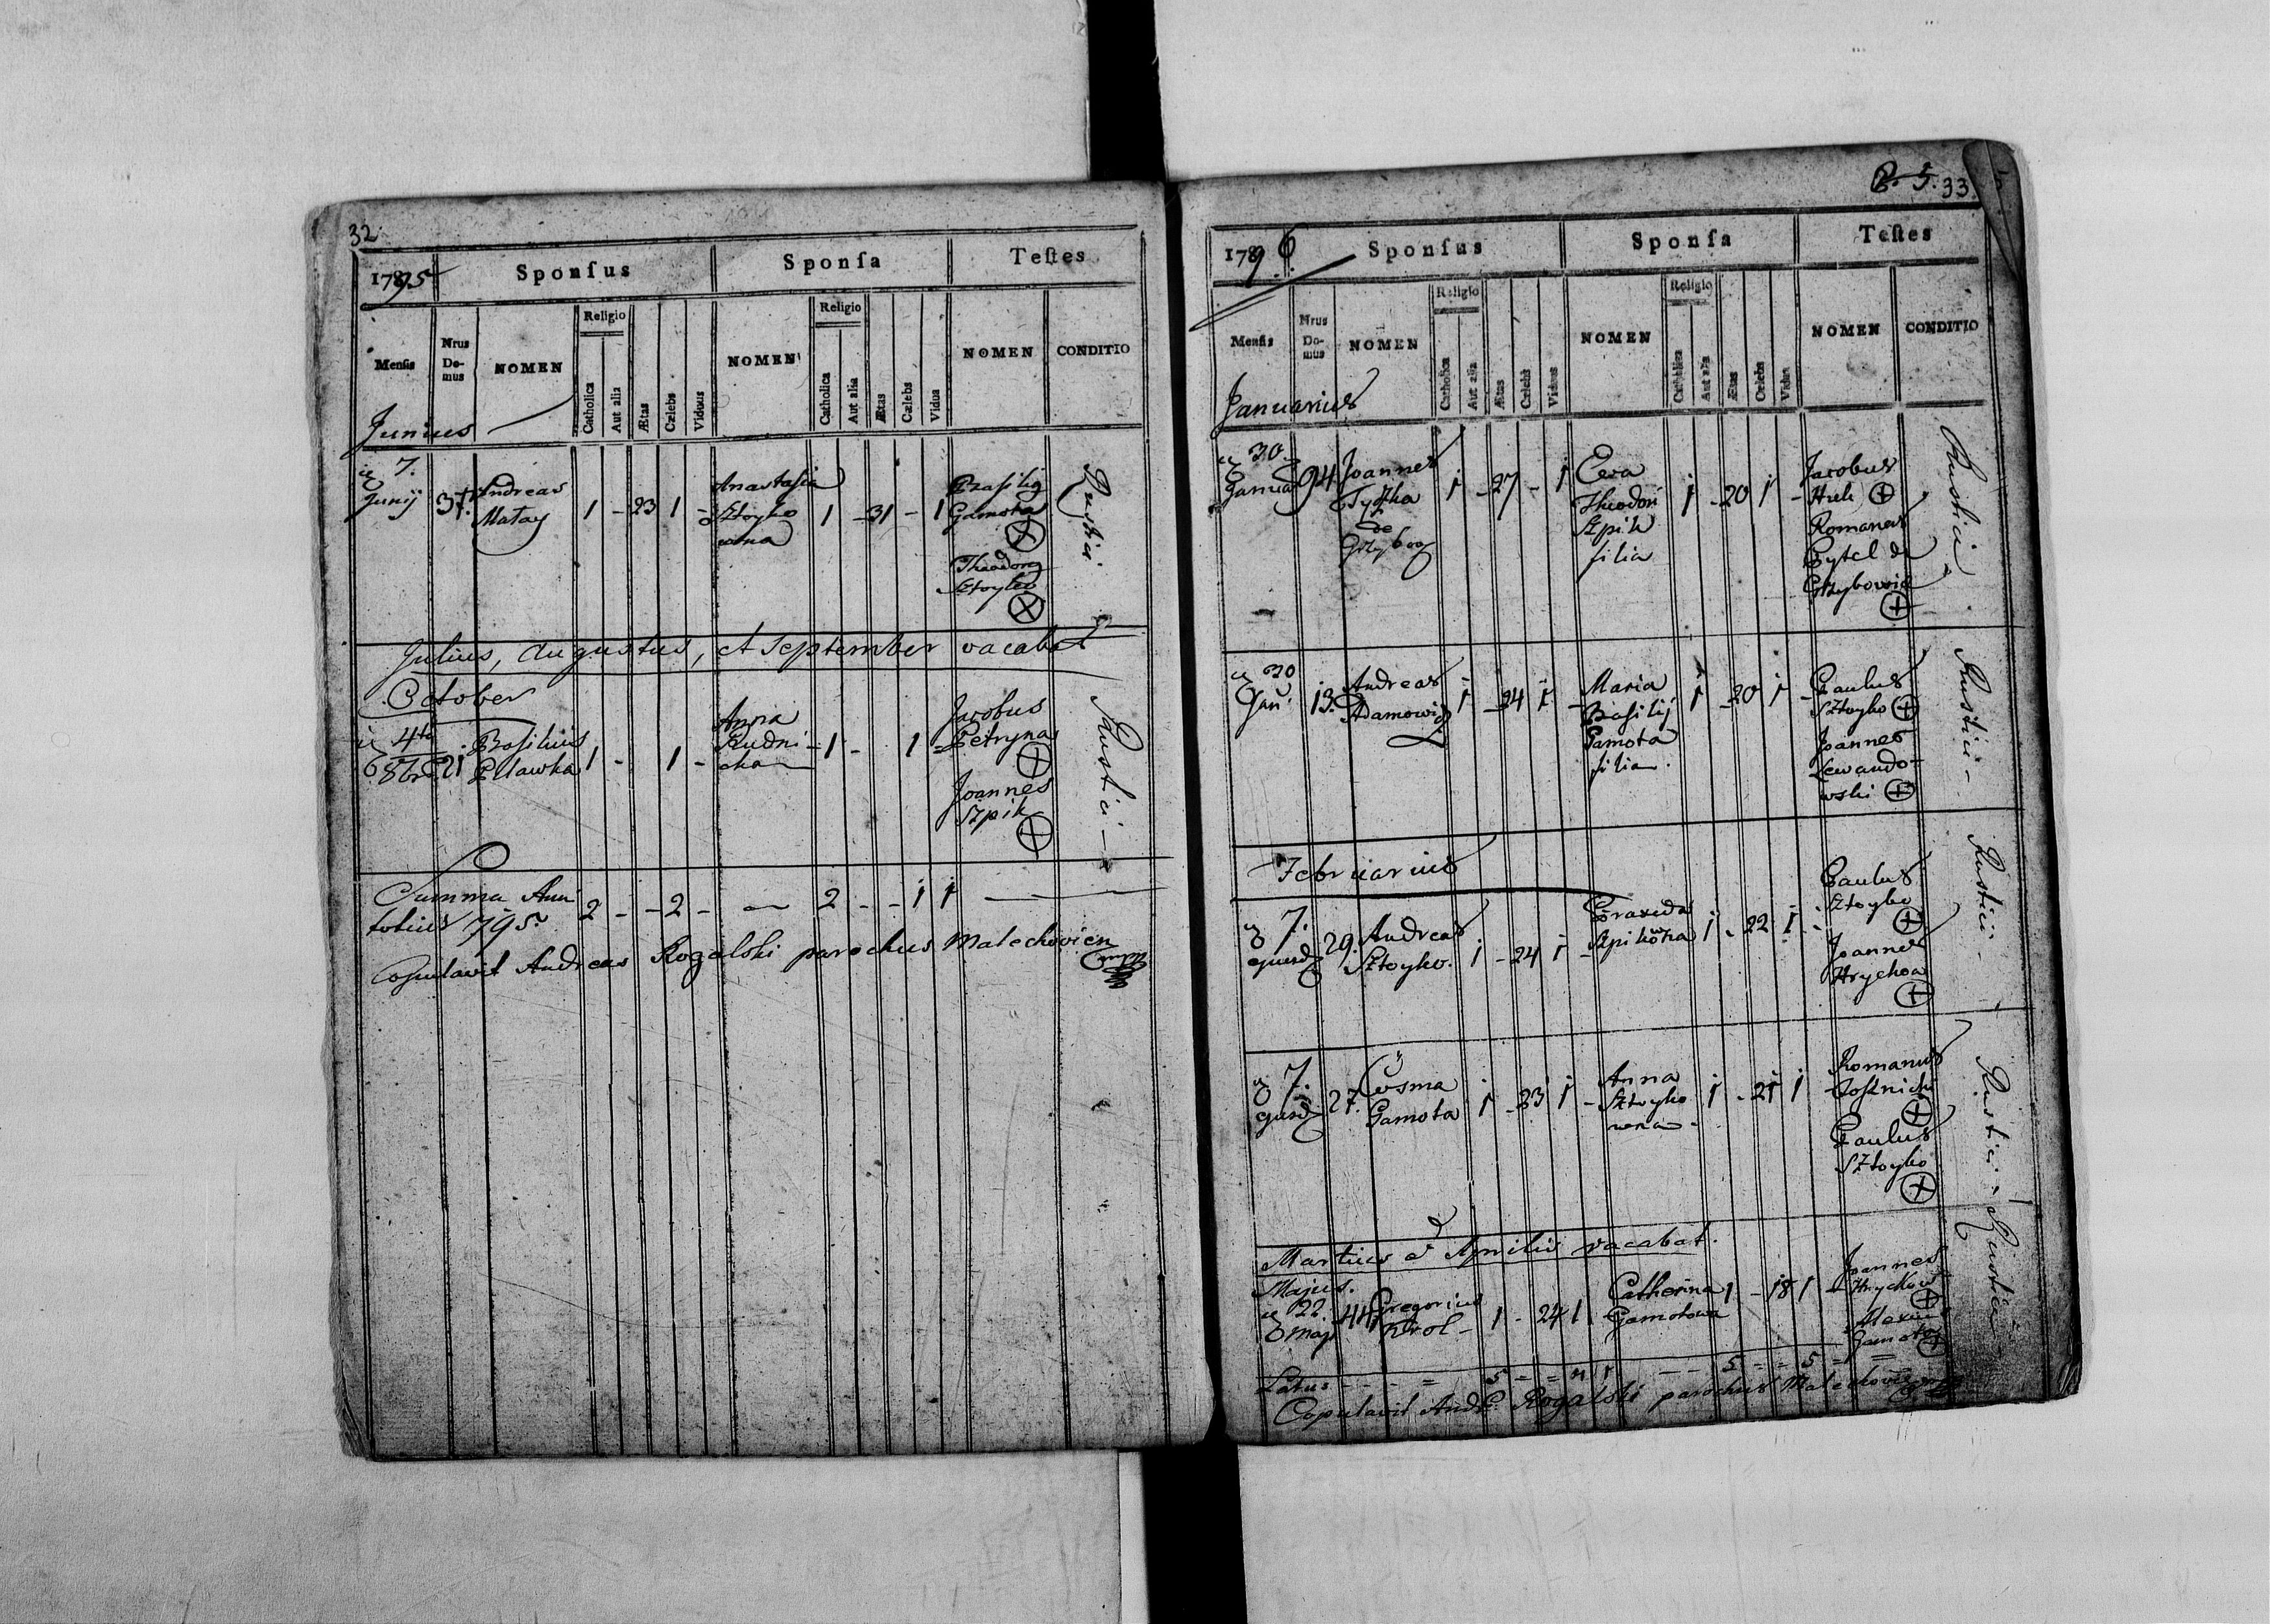 32.
1795 Sponſus Sponſa Teſtes
Menſis Nrus Domus NOMEN Religio Catholica Aut alia Ætas Cælebs Viduus NOMEN Religio Catholica Aut alia Ætas Cælebs Vidua NOMEN CONDITIO
Junius
7. Junij 37. Andreas 1 - 23 1 - Anastasia 1 - 31 - 1 Basilig Rustici
Matay Sztoyko Gamota
wna
Theodorg
Sztoyko
Julius, Augustus, et September vacabat
October
4ta 8br 21 Basilius 1 - 1 - Anna 1 - 1 - Jacobus Rustici
Rudni Petryna
cka
Joannes
Szpik
Summa Anni 2 - - 2 - - 2 - - 1 1
totius 1795
Copulavit Andreas Rogalski parochus Malechovien mpp
33.
1796 Sponſus Sponſa Teſtes
Menſis Nrus Domus NOMEN Religio Catholica Aut alia Ætas Cælebs Viduus NOMEN Religio Catholica Aut alia Ætas Cælebs Vidua NOMEN CONDITIO
Januarius
30. 94 Joannes 1 - 27 - 1 Eva 1 - 20 1 - Jacobus Rustici
de Theodori
Szpik Romanus
filia
30 Jan. 13. Andreas 1 - 24 1 - Maria 1 - 20 1 - Paulus Rustici
Adamowicz Basilij Sztoyko
Gamota Joannes
filia. Lewando-
wski
Februarius
7. ejusd 29. Andreas 1 - 24 1 - Praxeda 1 - 22 1 - Paulus Rustici
Sztoyko. Szpikowna Sztoyko
Joannes
7. ejusd 27. Cosma 1 - 23 1 - Anna 1 - 21 1 Romanus Rustici
Gamota Sztoyko
wna
Paulus
Sztoyko
Martius et Aprilis vacabat.
Majus.
22. Maj 44 Gregorius 1 - 24 1 Catherina 1 - 18 1 - Joannes Rustici
Krol - Gamotowa
Alexius
Gamota
Latus - - 5 - - 4 1 - - 5 - - 5
Copulavit Andr. Rogalski parochus Malechovien